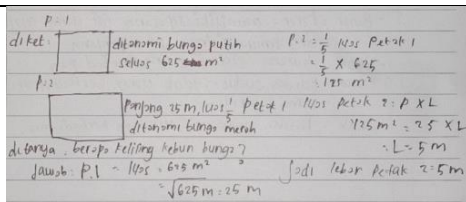 P = 1
diket : ditanami bunga putih
seluas 625 m²
P = 2
Panjang 25 m, luas 1/5 Petak 1
ditanami bunga merah
ditanya. berapa keliling kebun bunga ?
Jawab : P.1 = luas = 625 m²
= √625 m = 25 m
P. 2 = 1/5 luas Petak 1
= 1/5 x 625
= 125 m²
luas Petak 2 = P x L
125 m² = 25 x L
= L = 5 m
Jadi lebar Petak 2 = 5 m